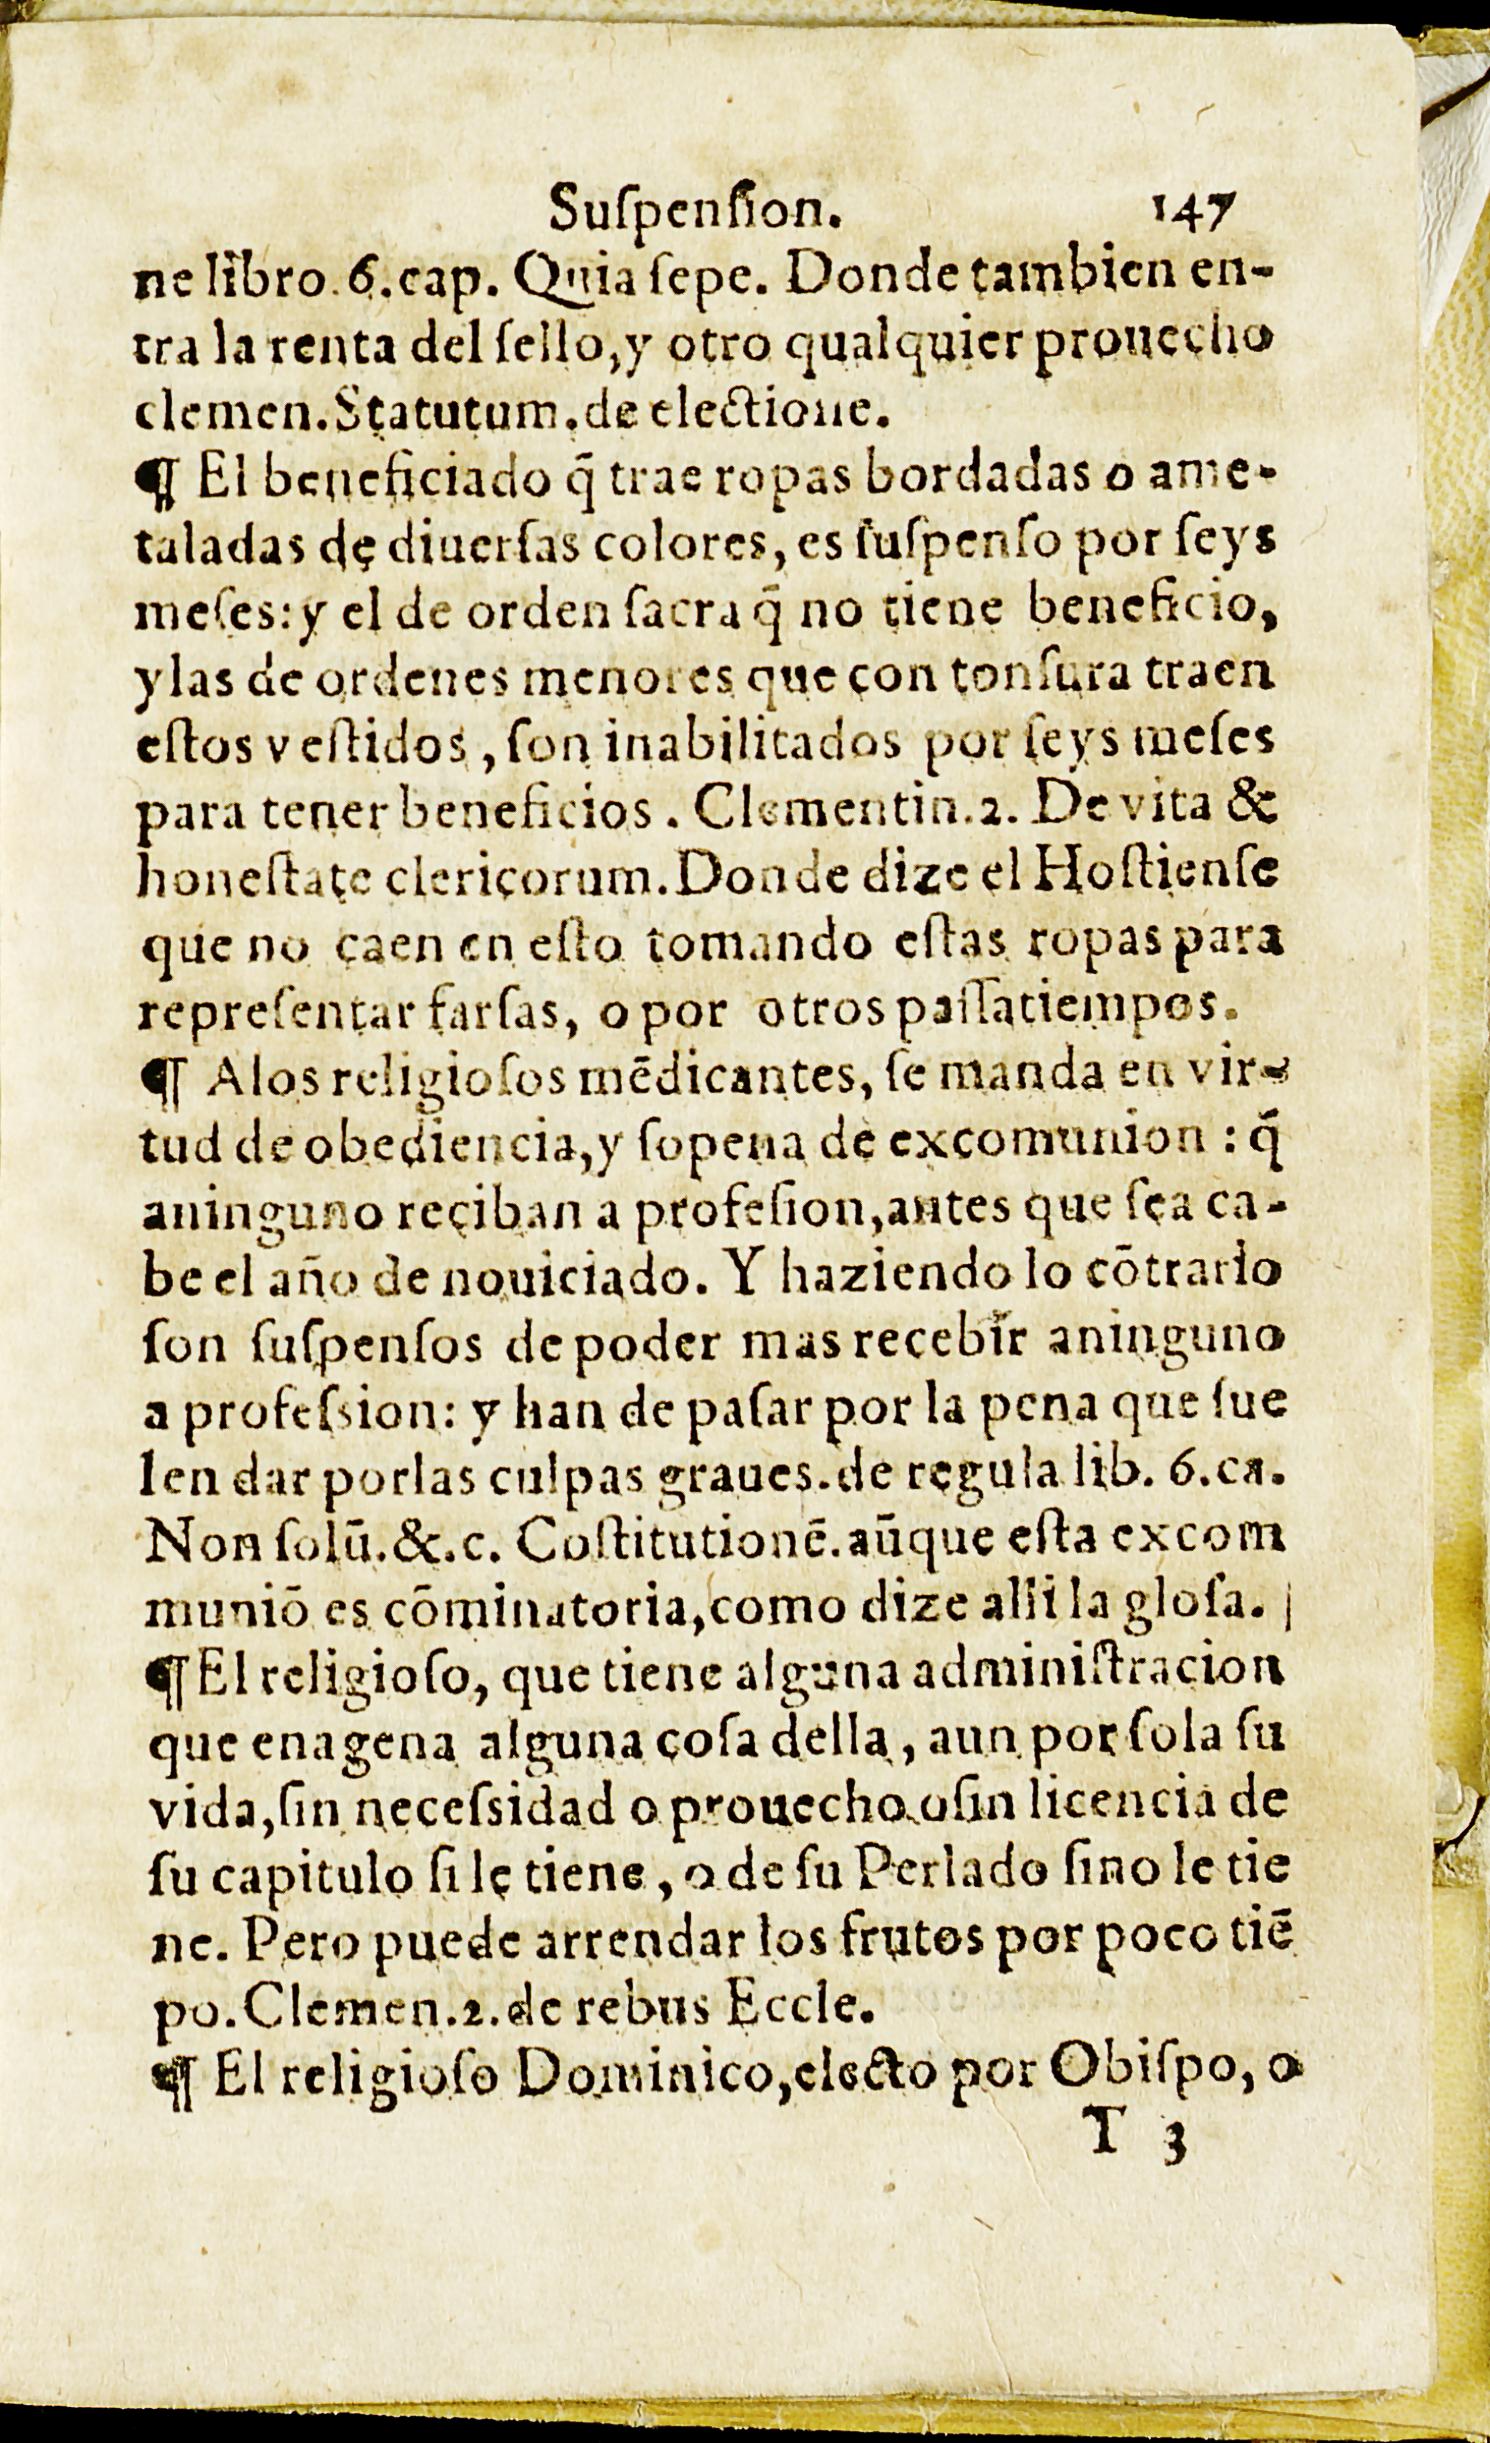 Suſpenſion. 147
ne libro.6.cap. Quia ſepe. Donde tambien en-
tra la renta del ſello,y otro qualquier prouecho
clemen.Statutum.de electione.
¶ El beneficiado q̃ trae ropas bordadas o ame-
taladas de diuerſas colores, es ſuſpenſo por ſeys
meſes:y el de orden ſacra q̃ no tiene beneficio,
y las de ordenes menores que con tonſura traen
eſtos veſtidos, ſon inabilitados por ſeys meſes
para tener beneficios. Clementin.2. De vita &
honeſtate clericorum.Donde dize el Hoſtienſe
que no caen en eſto tomando eſtas ropas para
repreſentar farſas, o por otros paſſatiempos.
¶ Alos religioſos mēdicantes, ſe manda en vir-
tud de obediencia,y ſopena de excomunion : q̃
aninguno reciban a profeſion,antes que ſea ca-
be el año de nouiciado. Y haziendo lo cōtrario
ſon ſuſpenſos de poder mas recebir aninguno
a profeſsion: y han de paſar por la pena que ſue
len dar porlas culpas graues.de regula lib. 6.ca.
Non ſolū.&.c. Coſtitutionē.aūque eſta excom
muniō es cōminatoria,como dize alli la gloſa.
¶ El religioſo, que tiene alguna adminiſtracion
que enagena alguna coſa della, aun por ſola ſu
vida,ſin neceſsidad o prouecho.oſin licencia de
ſu capitulo ſi le tiene, o de ſu Perlado ſino le tie
ne. Pero puede arrendar los frutos por poco tiē
po.Clemen.2.de rebus Eccle.
¶ El religioſo Dominico,electo por Obiſpo, o
T 3